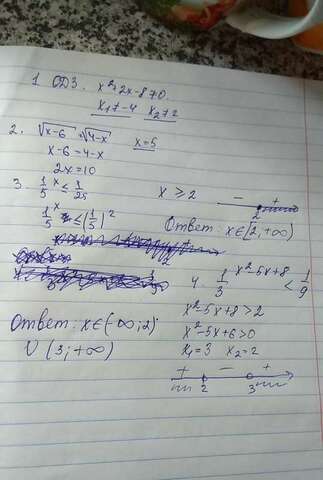 1. ОДЗ. x²+2x-8≠0.
x₁≠-4 x₂≠2
2. √x-6 = √4-x x=5
x-6=4-x
2x=10
3. 1/5^x ≤ 1/25
1/5^x ≤ (1/5)²
x ≥ 2 - + 2
Ответ: x∈[2;+∞)
4. 1/3^x²-5x+8 < 1/9
x²-5x+8>2
x²-5x+6>0
x₁=3 x₂=2
+ - +
2 3
Ответ: x∈(-∞;2)
∪ (3;+∞)